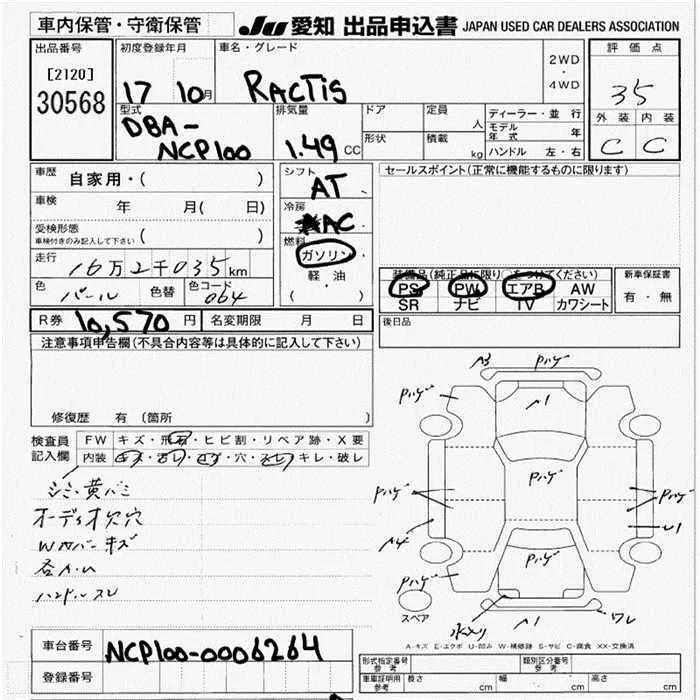 車内保管・守衛保管
JU 愛知 出品申込書 JAPAN USED CAR DEALERS ASSOCIATION
出品番号
[2120]
30568
初度登録年月
17 10月
車名・グレード
RACTIS
2WD
・
4WD
評価点
35
外装 内装
C C
型式
DBA-
NCP100
排気量
1.49 CC
ドア
形状
定員
人
積載
kg
ディーラー・並行
モデル年式 年
ハンドル 左・右
車歴 自家用・( )
車検 年 月( 日)
受検形態
車検付きのみ記入して下さい ( )
走行 16万2千035km
色 パール 色替 色コード 064
シフト
AT
冷房
AC
燃料
ガソリン・
軽・油
( )
セールスポイント(正常に機能するものに限ります)
装備品(純正品に限り○をつけてください)
PS PW エアB AW
SR ナビ TV カワシート
新車保証書
有・無
R券 10,570円 名変期限 月 日
後日品
注意事項申告欄(不具合内容等は具体的に記入して下さい)
修復歴 有 〔箇所 〕
検査員
記入欄
FW キズ・飛石・ヒビ割・リペア跡・X要
内装 キズ・汚レ・コゲ・穴・スレ・キレ・破レ
シミ・黄バミ
オーディオ欠穴
Wカバーキズ
各A.U
ハンドルスレ
A3 Pハゲ
Pハゲ
A1
Pハゲ
Pハゲ
Pハゲ
Pハゲ
A4
U1
Pハゲ
Pハゲ
Pハゲ
スペア
A1
ワレ
A-キズ E-エクボ U-凹み W-補修跡 S-サビ C-腐食 XX-交換済
車台番号 NCP100-0006264
登録番号
形式指定番号
参考
類別区分番号
参考
車庫証明用
参考
長さ cm 幅 cm 高さ cm